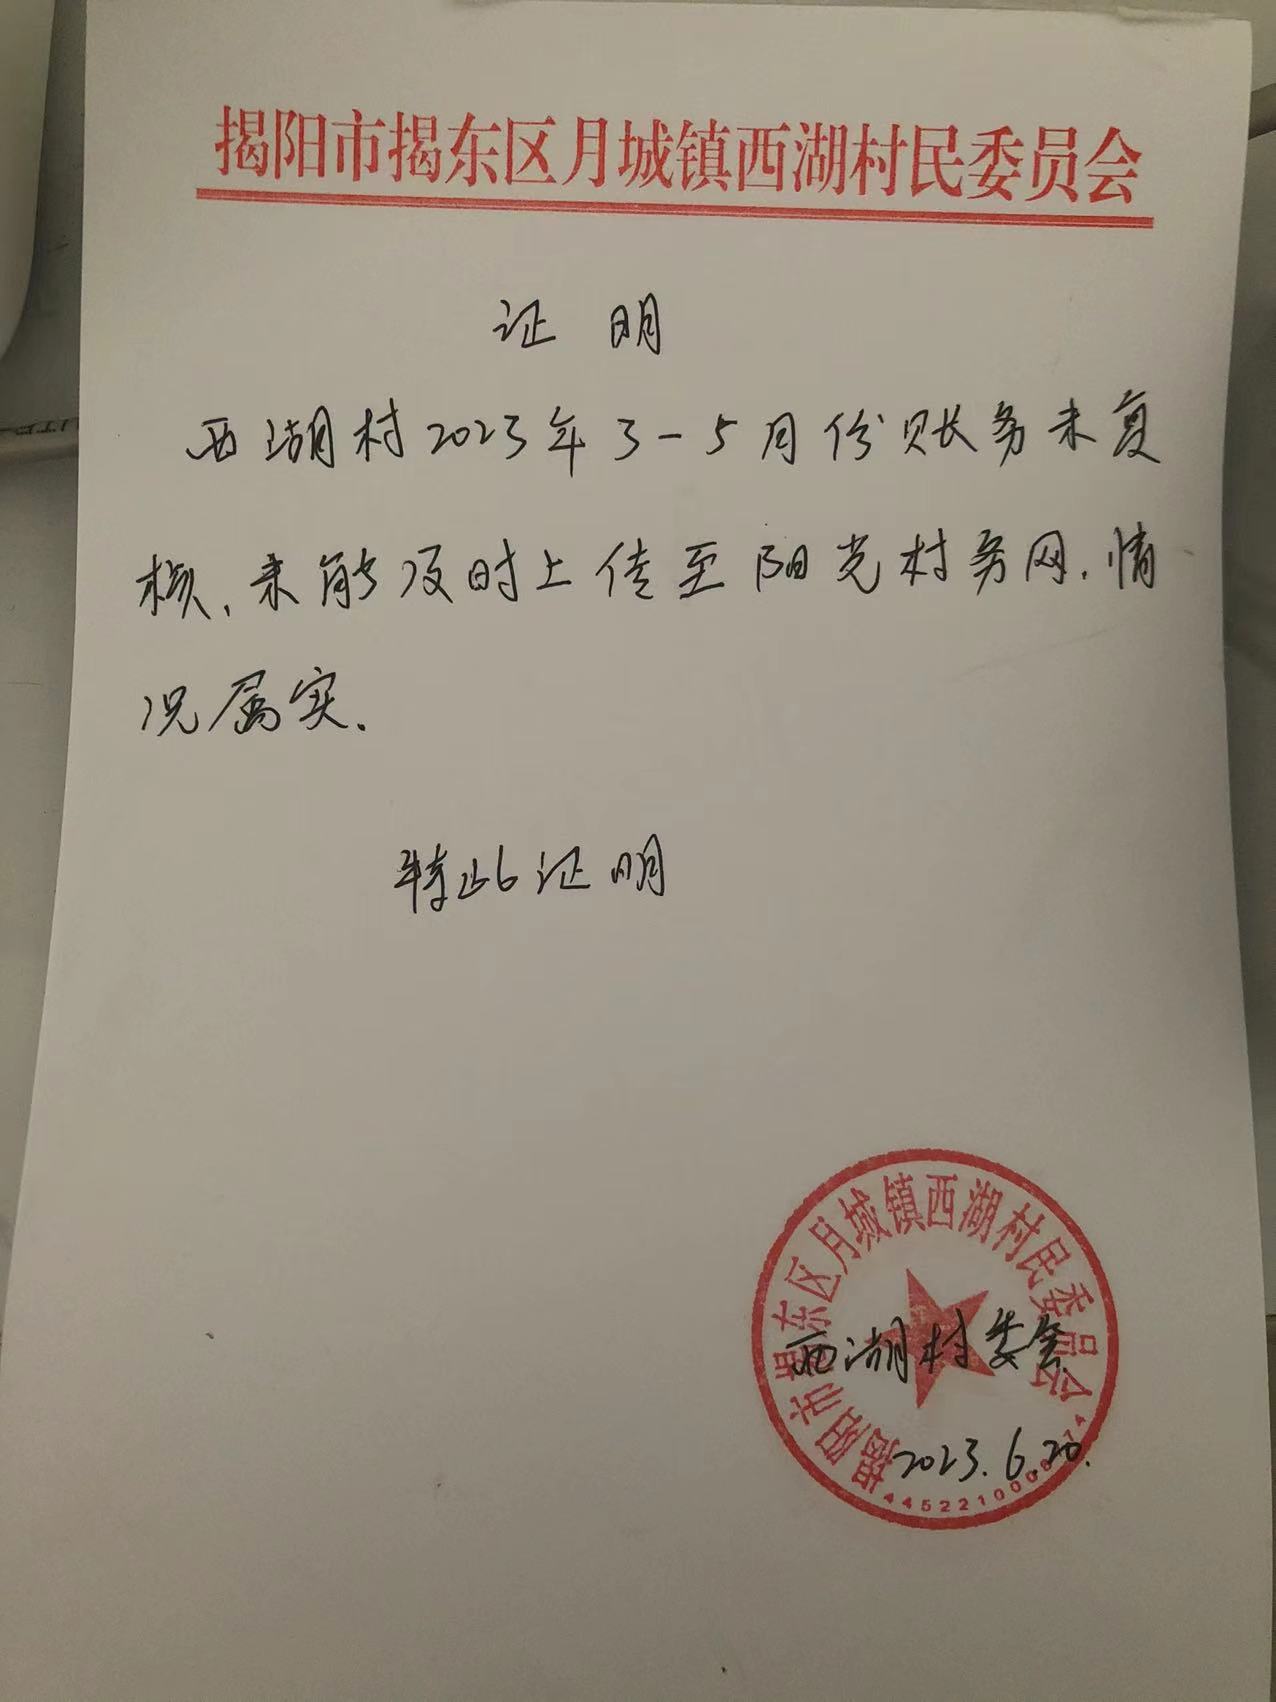 揭阳市揭东区月城镇西湖村民委员会
证明
西湖村2023年3-5月份账务未复
核,未能及时上传至阳光村务网,情
况属实.
特此证明
揭阳市揭东区月城镇西湖村民委员会
西湖村委会
2023.6.20.